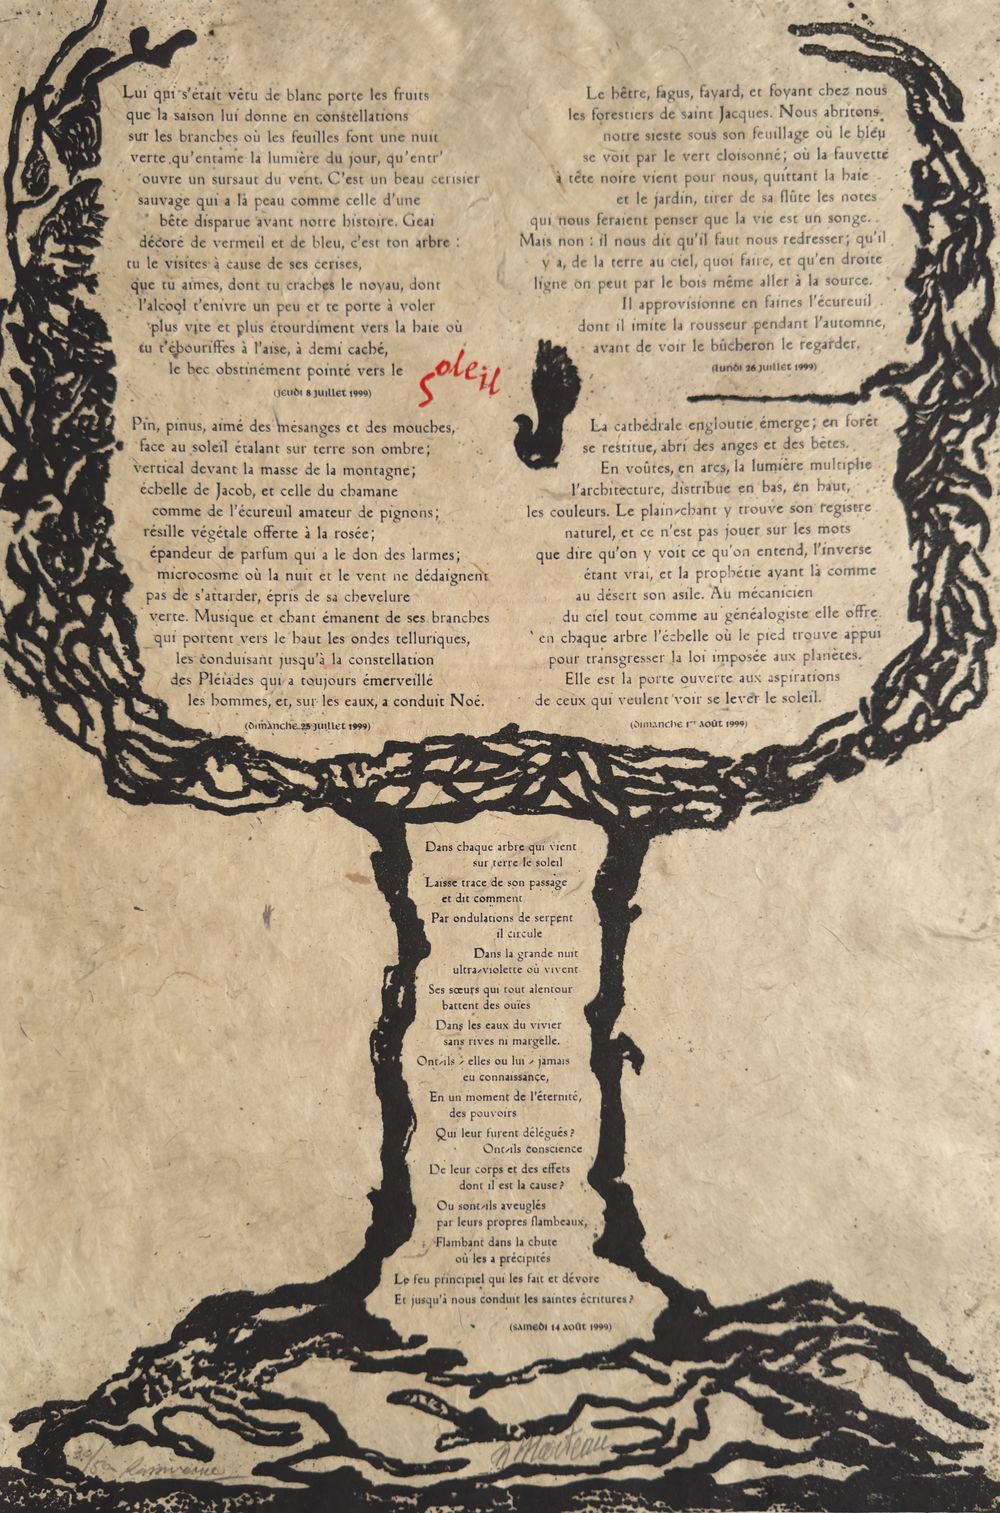 Lui qui s'était vêtu de blanc porte les fruits
que la saison lui donne en constellations
sur les branches où les feuilles font une nuit
verte qu'entame la lumière du jour, qu'entr'
ouvre un sursaut du vent. C'est un beau cerisier
sauvage qui a la peau comme celle d'une
bête disparue avant notre histoire. Geai
décoré de vermeil et de bleu, c'est ton arbre :
tu le visites à cause de ses cerises,
que tu aimes, dont tu craches le noyau, dont
l'alcool t'enivre un peu et te porte à voler
plus vite et plus étourdiment vers la haie où
tu t'ébouriffes à l'aise, à demi caché,
le bec obstinément pointé vers le
soleil
(jeudi 8 juillet 1999)
Pin, pinus, aimé des mésanges et des mouches,
face au soleil étalant sur terre son ombre;
vertical devant la masse de la montagne;
échelle de Jacob, et celle du chamane
comme de l'écureuil amateur de pignons;
résille végétale offerte à la rosée;
épandeur de parfum qui a le don des larmes;
microcosme où la nuit et le vent ne dédaignent
pas de s'attarder, épris de sa chevelure
verte. Musique et chant émanent de ses branches
qui portent vers le haut les ondes telluriques,
les conduisant jusqu'à la constellation
des Pléiades qui a toujours émerveillé
les hommes, et, sur les eaux, a conduit Noé.
(dimanche 25 juillet 1999)
Le hêtre, fagus, fayard, et foyant chez nous
les forestiers de saint Jacques. Nous abritons
notre sieste sous son feuillage où le bleu
se voit par le vert cloisonné; où la fauvette
à tête noire vient pour nous, quittant la haie
et le jardin, tirer de sa flûte les notes
qui nous feraient penser que la vie est un songe.
Mais non : il nous dit qu'il faut nous redresser; qu'il
y a, de la terre au ciel, quoi faire, et qu'en droite
ligne on peut par le bois même aller à la source.
Il approvisionne en faines l'écureuil
dont il imite la rousseur pendant l'automne,
avant de voir le bûcheron le regarder.
(lundi 26 juillet 1999)
La cathédrale engloutie émerge; en forêt
se restitue, abri des anges et des bêtes.
En voûtes, en arcs, la lumière multiplie
l'architecture, distribue en bas, en haut,
les couleurs. Le plain-chant y trouve son registre
naturel, et ce n'est pas jouer sur les mots
que dire qu'on y voit ce qu'on entend, l'inverse
étant vrai, et la prophétie ayant là comme
au désert son asile. Au mécanicien
du ciel tout comme au généalogiste elle offre
en chaque arbre l'échelle où le pied trouve appui
pour transgresser la loi imposée aux planètes.
Elle est la porte ouverte aux aspirations
de ceux qui veulent voir se lever le soleil.
(dimanche 1er août 1999)
Dans chaque arbre qui vient
sur terre le soleil
Laisse trace de son passage
et dit comment
Par ondulations de serpent
il circule
Dans la grande nuit
ultra-violette où vivent
Ses sœurs qui tout alentour
battent des ouïes
Dans les eaux du vivier
sans rives ni margelle.
Ont-ils - elles ou lui - jamais
eu connaissance,
En un moment de l'éternité,
des pouvoirs
Qui leur furent délégués?
Ont-ils conscience
De leur corps et des effets
dont il est la cause?
Ou sont-ils aveuglés
par leurs propres flambeaux,
Flambant dans la chute
où les a précipités
Le feu principiel qui les fait et dévore
Et jusqu'à nous conduit les saintes écritures?
(samedi 14 août 1999)
R Marteau